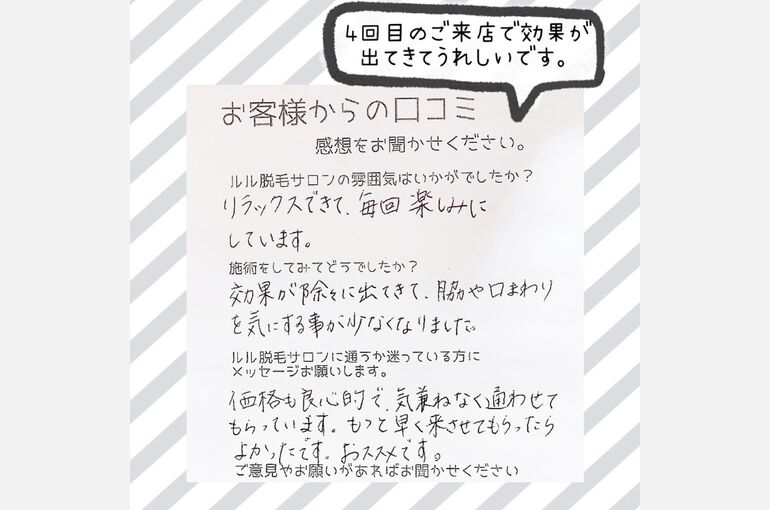 4回目のご来店で効果が
出てきてうれしいです。
お客様からの口コミ
感想をお聞かせください。
ルル脱毛サロンの雰囲気はいかがでしたか？
リラックスできて、毎回 楽しみに
しています。
施術をしてみてどうでしたか？
効果が徐々に出てきて、脇や口まわり
を気にする事が少なくなりました。
ルル脱毛サロンに通うか迷っている方に
メッセージお願いします。
価格も良心的で、気兼ねなく通わせて
もらっています。もっと早く来させてもらったら
よかったです。おススメです。
ご意見やお願いがあればお聞かせください